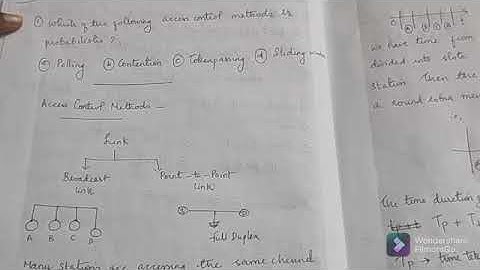 ① Which of the following access control methods is
probabilistic ?
ⓐ Polling ⓑ Contention ⓒ Tokenpassing ⓓ Sliding
Access Control Methods -
Link
Broadcast
Link
Point-to-Point
Link
A B C D
Full Duplex
Many Stations are accessing the same channel
We have time from
divided into slots
Station then the
a round
i.e,
The time duration
Tp + T
Tp → time
Wondershare
Filmora